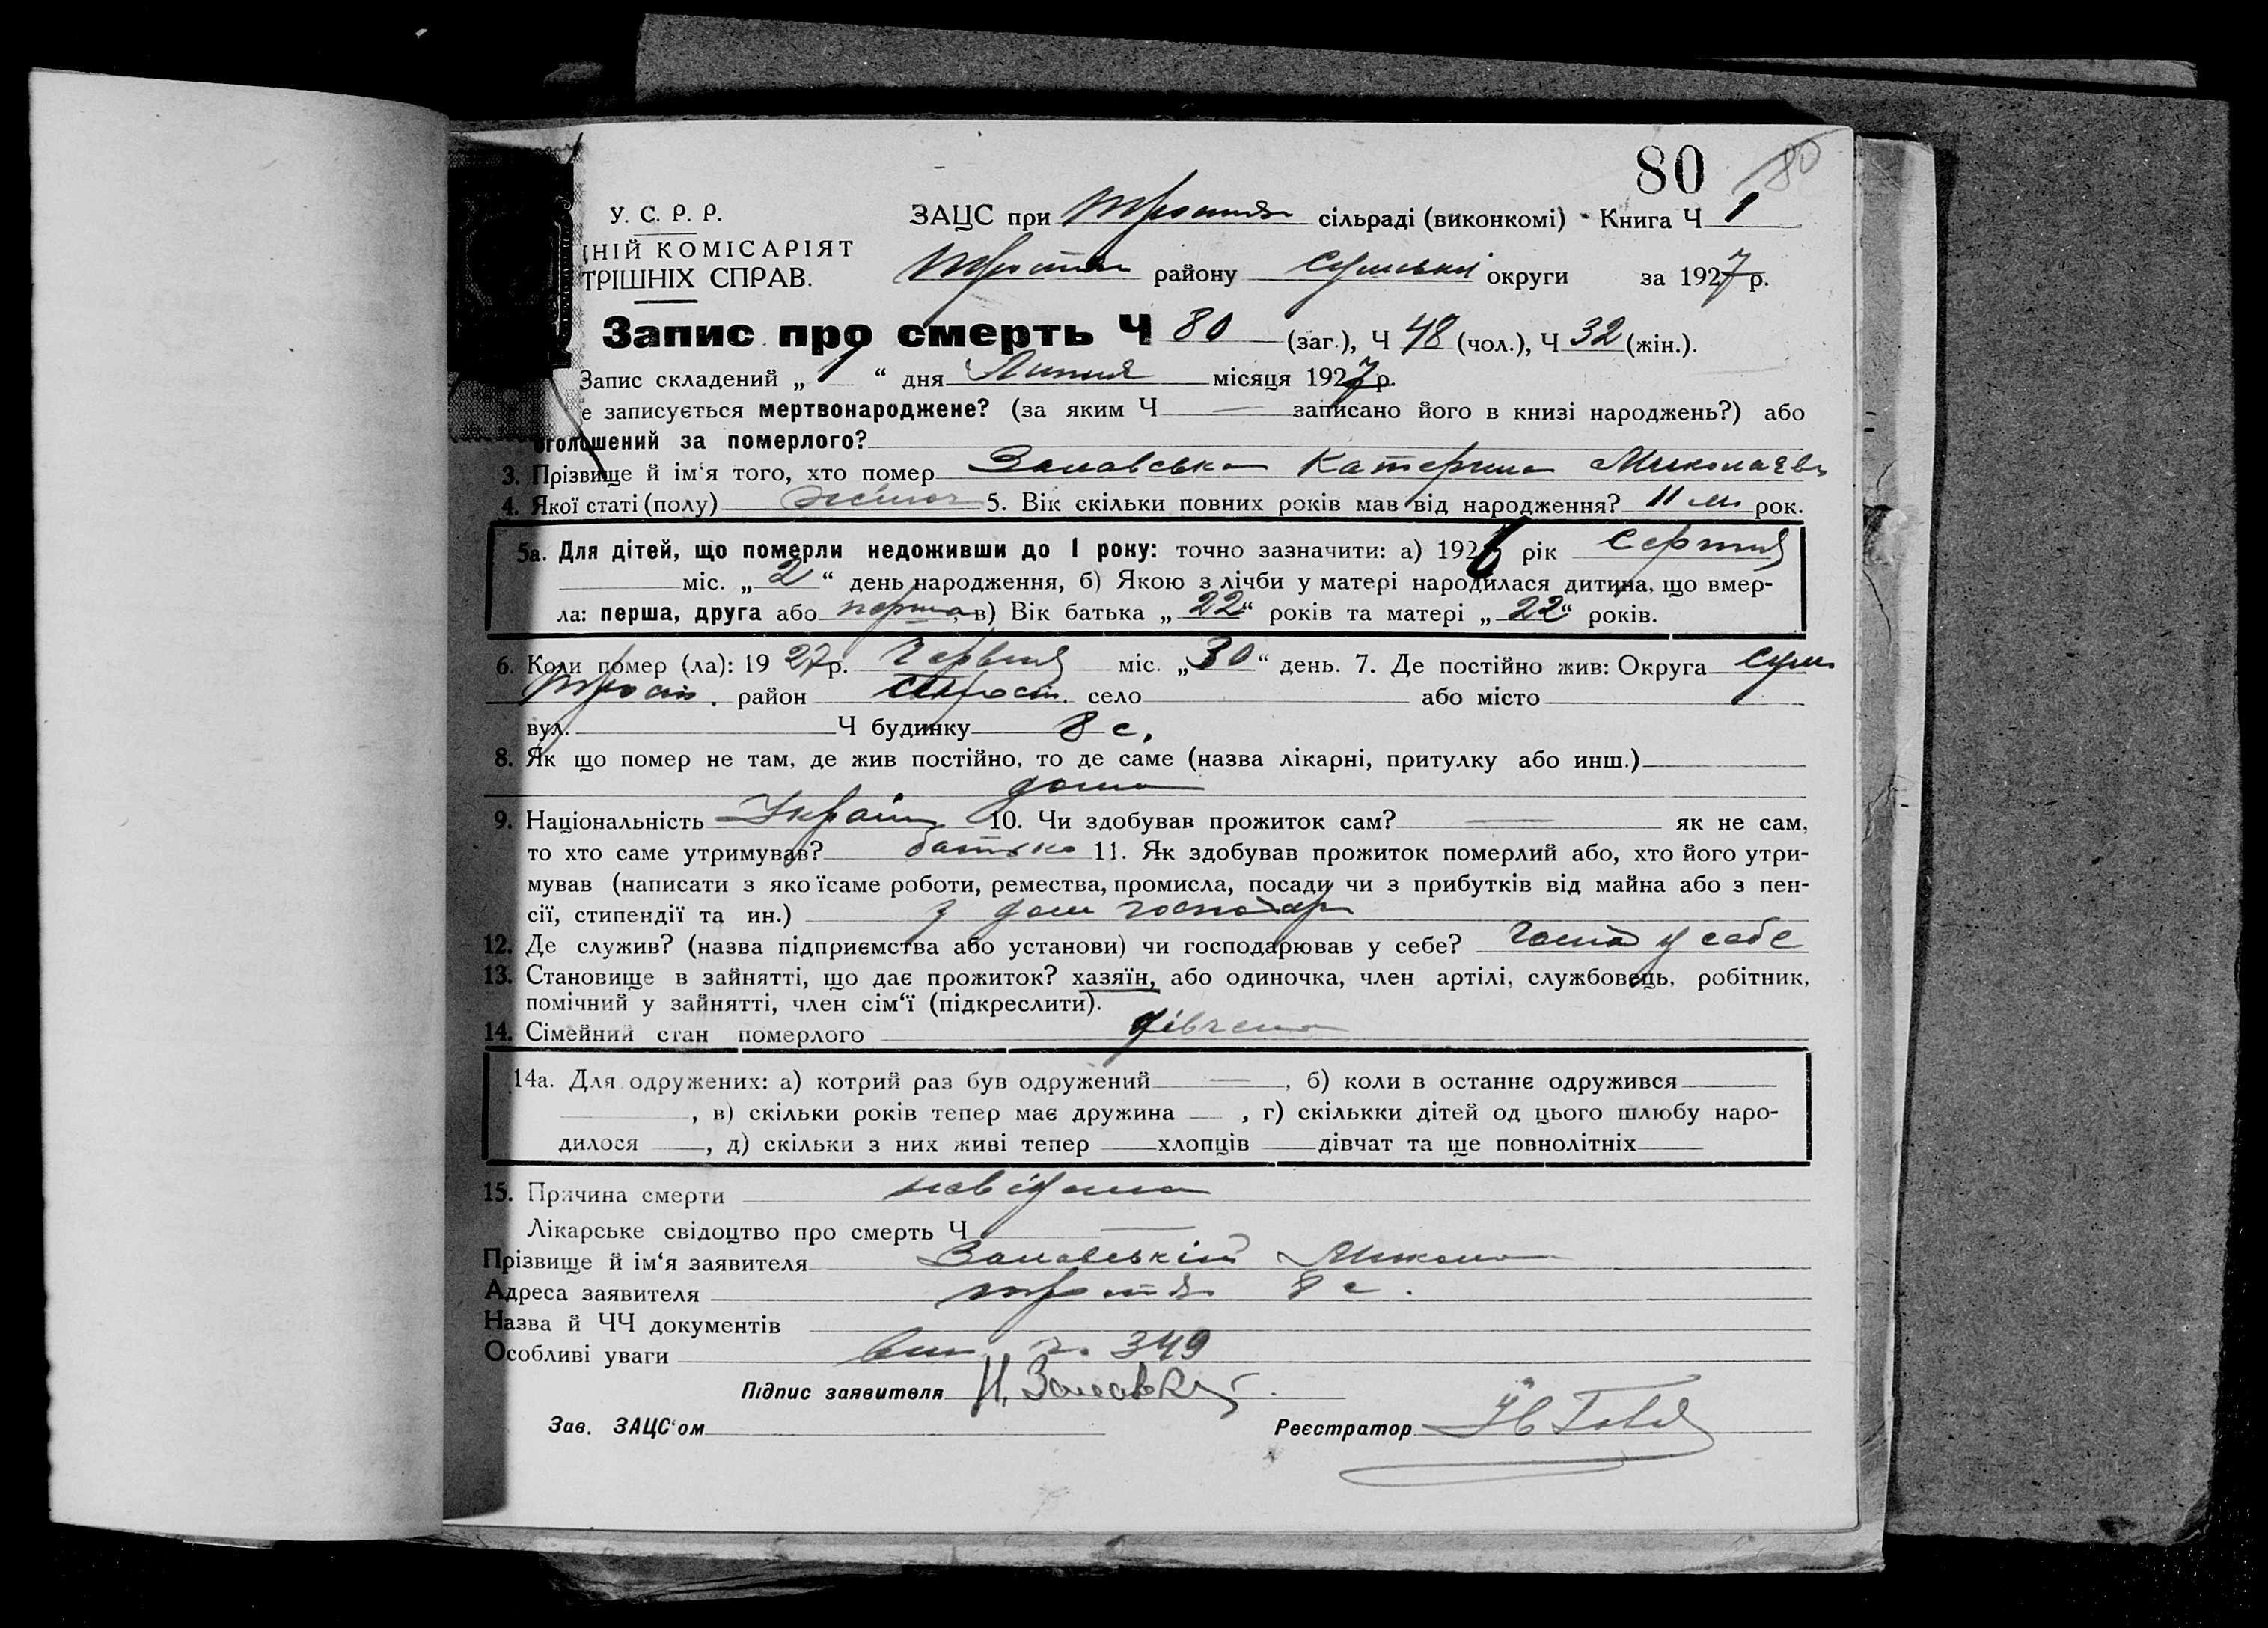 80 80
У. С. Р. Р. ЗАЦС при сільраді (виконкомі) Книга Ч 1
НІЙ КОМІСАРІЯТ
району округи за 1927 р.
ТРІШНІХ СПРАВ.
Запис про смерть Ч 80 (заг.), Ч 48 (чол.), Ч 32 (жін.).
Запис складений „ 1 “ дня Липня місяця 1927 р.
е записується мертвонароджене? (за яким Ч — записано його в книзі народжень?) або
оголошений за померлого?
3. Прізвище й ім‘я того, хто помер Катерина
4. Якої статі (полу) 5. Вік скільки повних років мав від народження? 11 м рок.
5а. Для дітей, що померли недоживши до 1 року: точно зазначити: а) 1926 рік Серпня
міс. „ 2 “ день народження, б) Якою з лічби у матері народилася дитина, що вмер-
ла: перша, друга або перша, в) Вік батька „ 22 “ років та матері „ 22 “ років.
6. Коли помер (ла): 19 27 р. Червня міс. „ 30 “ день. 7. Де постійно жив: Округа Сум
Трост. район с. Трост. село або місто
вул. Ч будинку 8 с.
8. Як що помер не там, де жив постійно, то де саме (назва лікарні, притулку або инш.)
дома
9. Національність Україн 10. Чи здобував прожиток сам? — як не сам,
то хто саме утримував? батько 11. Як здобував прожиток померлий або, хто його утри-
мував (написати з якоїсаме роботи, ремества, промисла, посади чи з прибутків від майна або з пен-
сії, стипендії та ин.) з господар
12. Де служив? (назва підприємства або установи) чи господарював у себе? у себе
13. Становище в зайнятті, що дає прожиток? хазяїн, або одиночка, член артілі, службовець, робітник,
помічний у зайнятті, член сім‘ї (підкреслити).
14. Сімейний стан померлого дівчена
14а. Для одружених: а) котрий раз був одружений —, б) коли в останнє одружився
, в) скільки років тепер має дружина — , г) скількки дітей од цього шлюбу наро-
дилося —, д) скільки з них живі тепер — хлопців — дівчат та ще повнолітніх —
15. Причина смерти невідома
Лікарське свідоцтво про смерть Ч —
Прізвище й ім‘я заявителя Микола
Адреса заявителя 8 с.
Назва й ЧЧ документів
Особливі уваги 349
Підпис заявителя
Зав. ЗАЦС‘ом Реєстратор